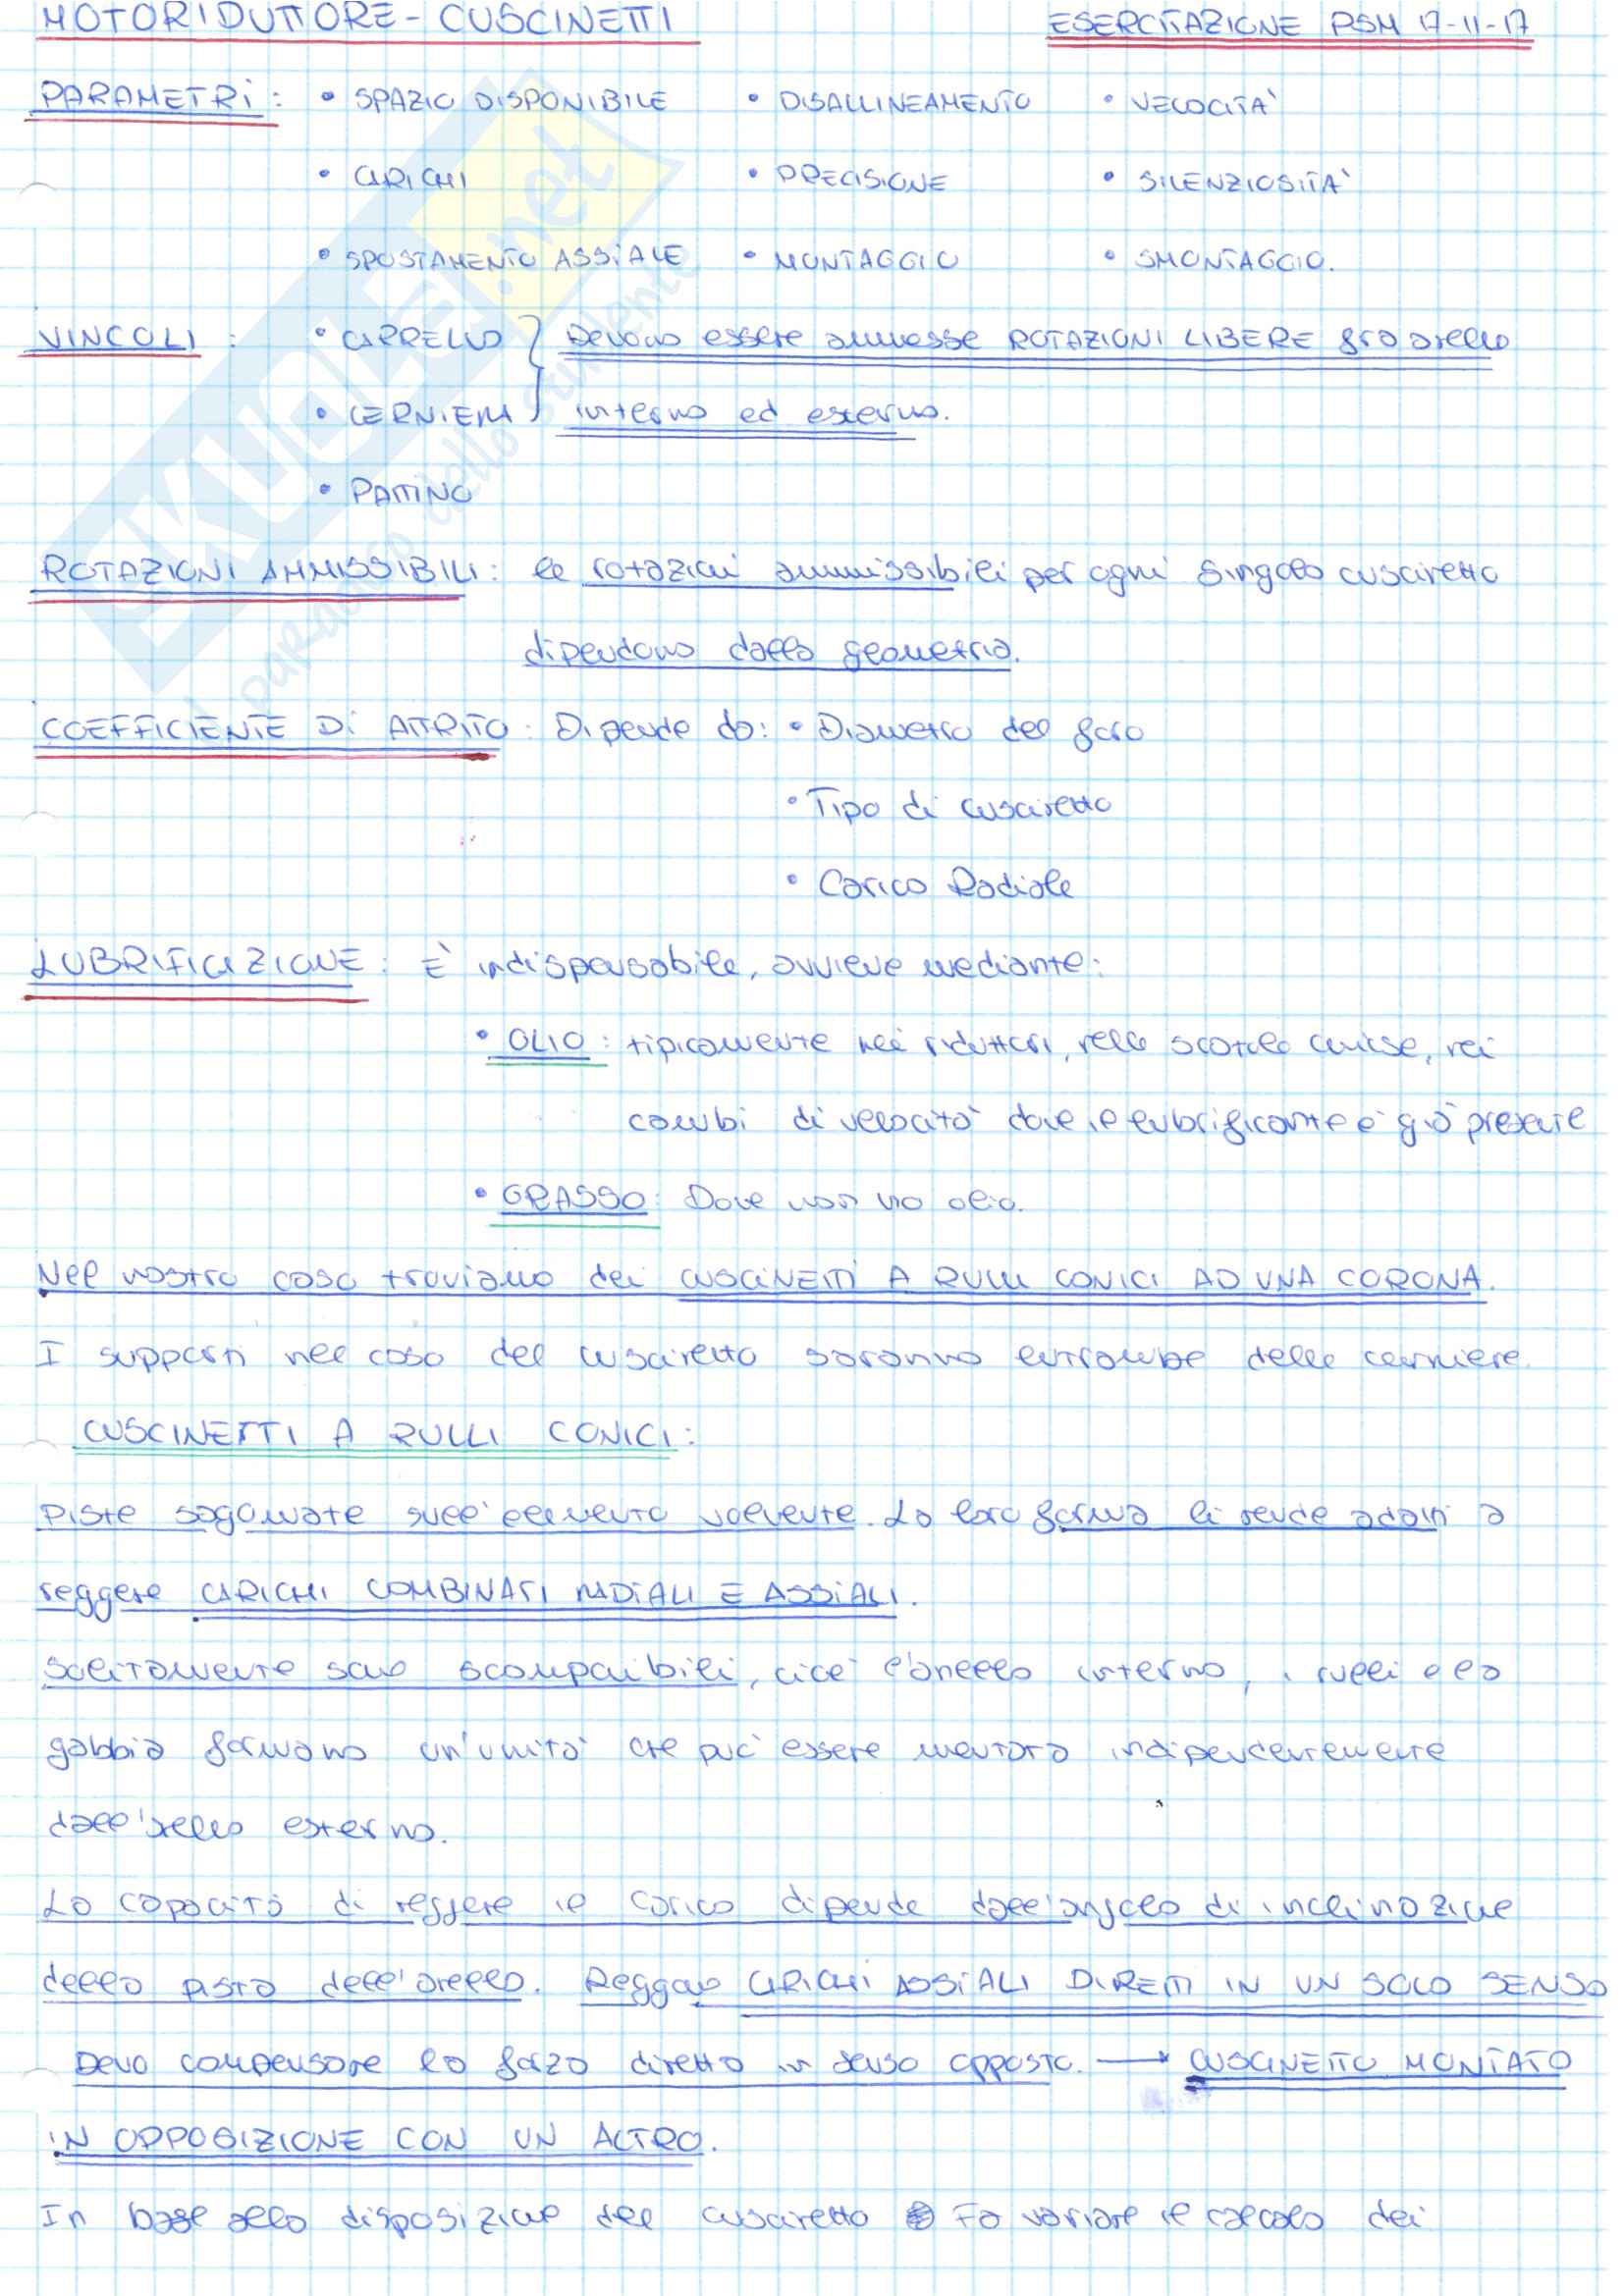 MOTORIDUTTORE - CUSCINETTI ESERCITAZIONE PSM 17-11-17
PARAMETRI: • SPAZIO DISPONIBILE • DISALLINEAMENTO • VELOCITA'
• CARICHI • PRECISIONE • SILENZIOSITA'
• SPOSTAMENTO ASSIALE • MONTAGGIO • SMONTAGGIO.
VINCOLI: • CARRELLO } Devono essere ammesse ROTAZIONI LIBERE fra anello
• CERNIERA interno ed esterno.
• PATTINO
ROTAZIONI AMMISSIBILI: le rotazioni ammissibili per ogni singolo cuscinetto
dipendono dalla geometria.
COEFFICIENTE Di ATTRITO: Dipende da: • Diametro del foro
• Tipo di cuscinetto
• Carico Radiale
LUBRIFICAZIONE: E' indispensabile, avviene mediante:
• OLIO: tipicamente nei riduttori, nelle scatole chiuse, nei
cambi di velocità dove il lubrificante è già presente
• GRASSO: Dove non ho olio.
Nel nostro caso troviamo dei CUSCINETTI A RULLI CONICI AD UNA CORONA.
I supporti nel caso del cuscinetto saranno entrambe delle cerniere.
CUSCINETTI A RULLI CONICI:
Piste sagomate sull'elemento volvente. La loro forma li rende adatti a
reggere CARICHI COMBINATI RADIALI E ASSIALI.
Solitamente sono scomponibili, cioè l'anello interno, i rulli e la
gabbia formano un'unità che può essere montata indipendentemente
dall'anello esterno.
La capacità di reggere il carico dipende dall'angolo di inclinazione
della pista dell'anello. Reggono CARICHI ASSIALI DIRETTI IN UN SOLO SENSO
Devo compensare la forza diretta in senso opposto. → CUSCINETTO MONTATO
IN OPPOSIZIONE CON UN ALTRO.
In base alla disposizione del cuscinetto Fa variare il calcolo dei
SKUOLA.net
il paradiso dello studente